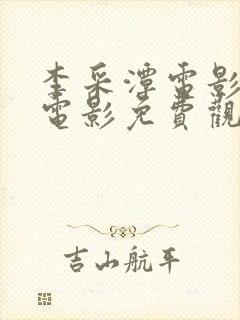 李采潭電影
電影免費觀
吉山航平